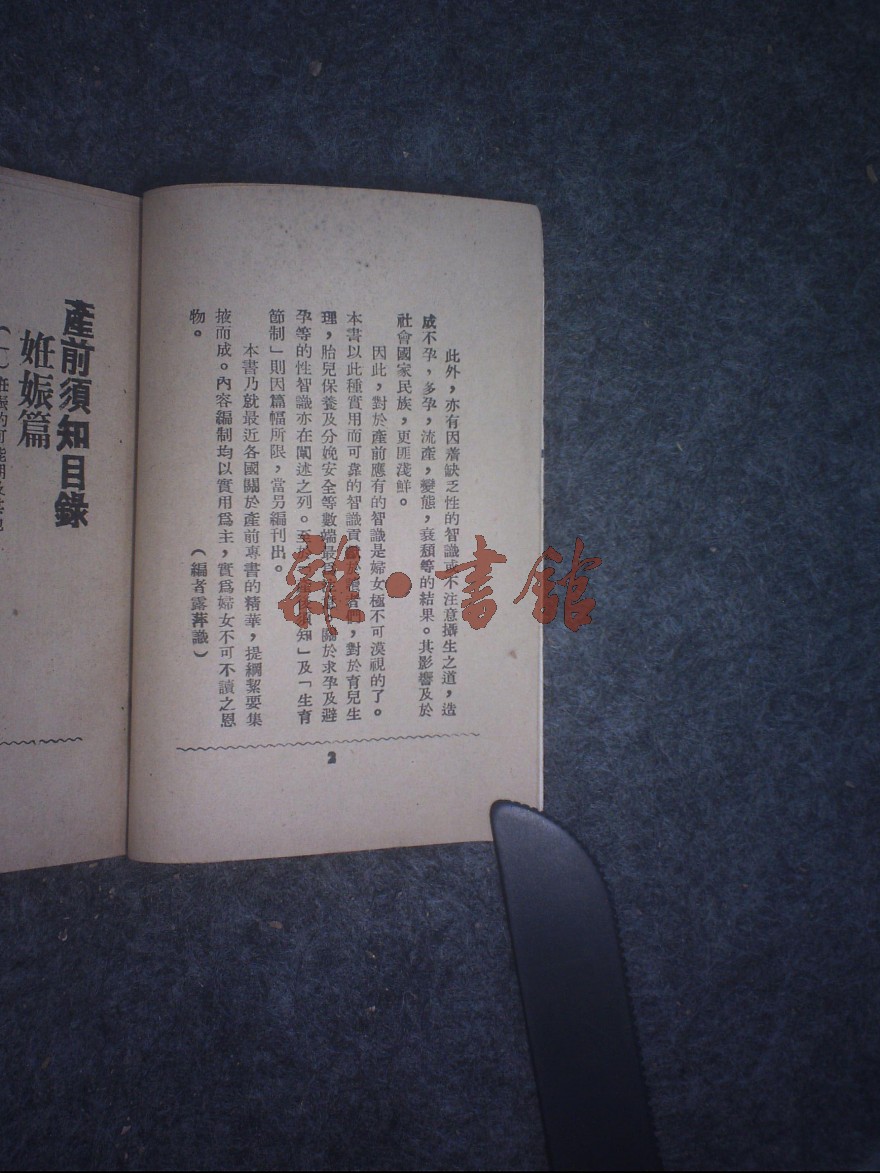 此外，亦有因着缺乏性的智識或不注意攝生之道，造
成不孕，多孕，流產，變態，衰頹等的結果。其影響及於
社會國家民族，更匪淺鮮。
因此，對於產前應有的智識是婦女極不可漠視的了。
本書以此種實用而可靠的智識貢獻於讀者們，對於育兒生
理，胎兒保養及分娩安全等數端最爲 關於求孕及避
孕等的性智識亦在闡述之列。至於 知」及「生育
節制」則因篇幅所限，當另編刊出。
本書乃就最近各國關於產前專書的精華，提綱絜要集
掖而成。內容編制均以實用爲主，實爲婦女不可不讀之恩
物。
（編者露莽識）
2
產前須知目錄
妊娠篇
（一）妊娠的可能期及其他
雜·書館